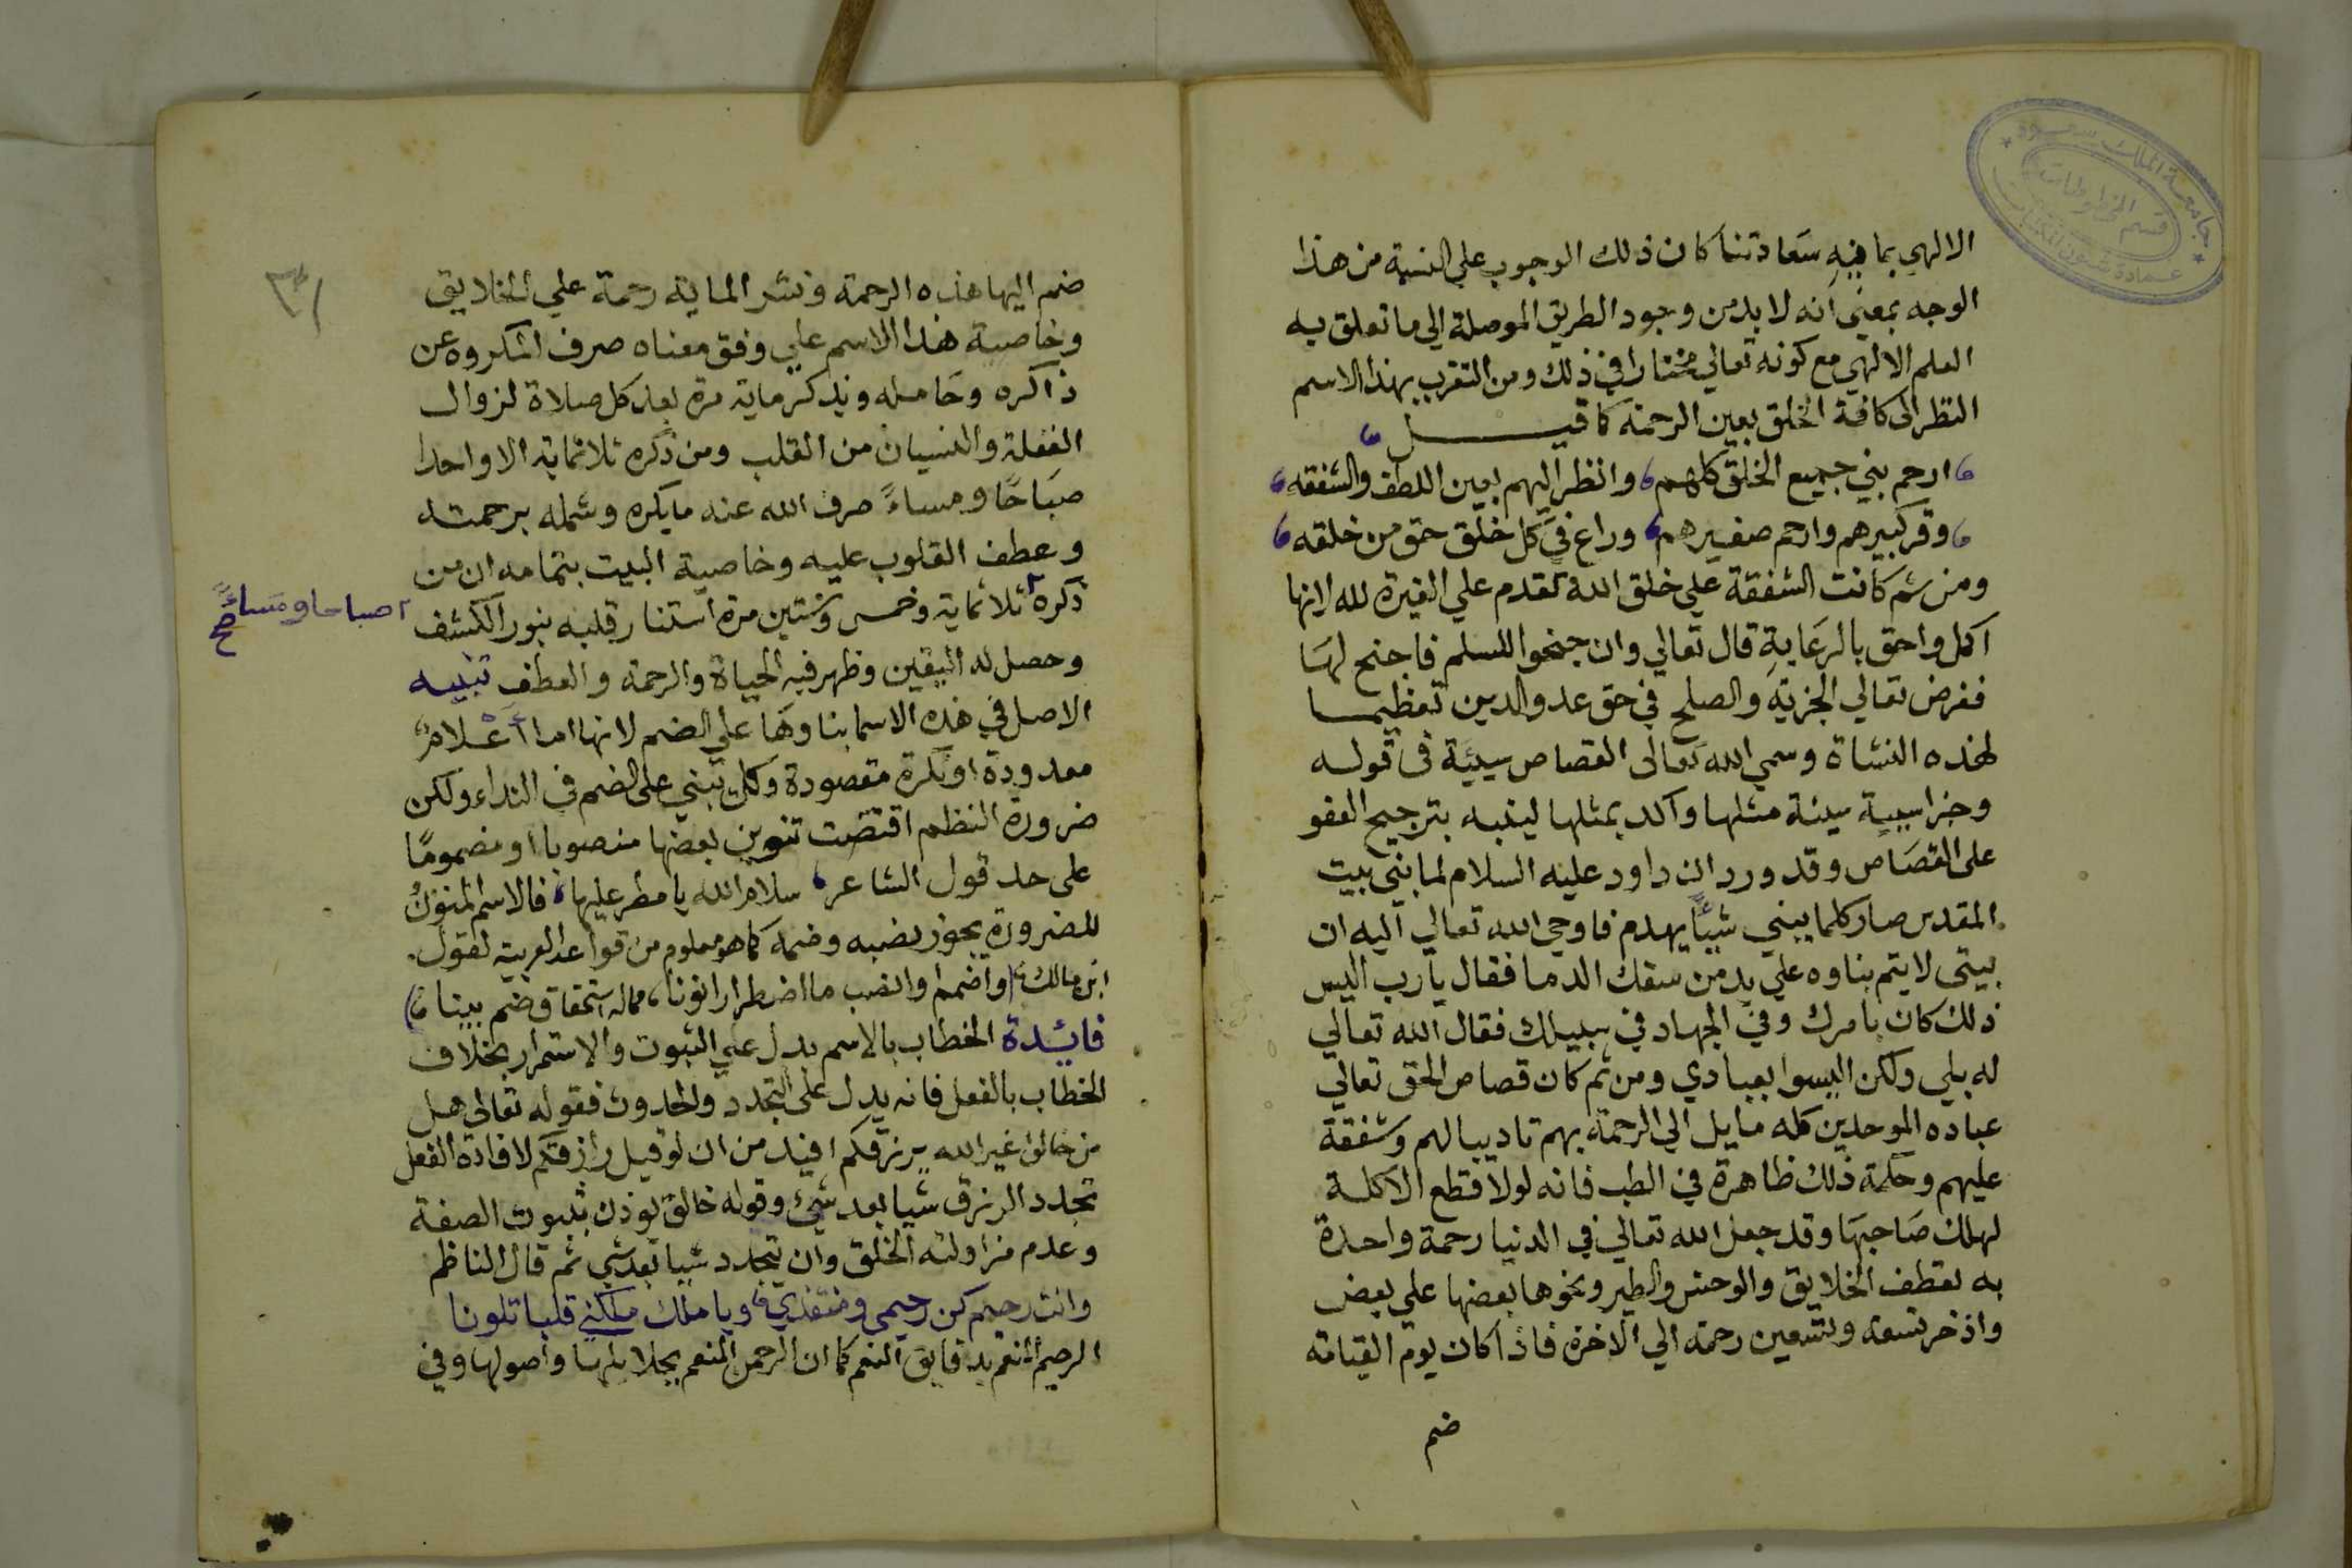 جامعة الملك سعود
قسم المخطوطات
عمادة شئون المكتبات
الالهي بما فيه سعادتنا كان ذلك الوجوب علي النسبة من هذا
الوجه بمعني انه لا بد من وجود الطريق الموصلة الي ما تعلق به
العلم الالهي مع كونه تعالي مختارا في ذلك ومن التقرب بهذا الاسم
النظر الى كافة الخلق بعين الرحمة كما قيل
ارحم بني جميع الخلق كلهم وانظر اليهم بعين اللطف والشفقه
وقر كبيرهم وارحم صغيرهم وراع في كل خلق حق من خلقه
ومن ثم كانت الشفقة علي خلق الله تقدم علي الغيرة لله لانها
اكمل واحق بالرعاية قال تعالي وان جنحوا للسلم فاجنح لها
ففرض تعالي الجزية والصلح في حق عدو الدين تعظيما
لهذه النشاة وسمي الله تعالى القصاص سيئة في قوله
وجزا سيية سيئة مثلها واكد بمثلها لينبه بترجيح العفو
على القصاص وقد ورد ان داود عليه السلام لما بني بيت
المقدس صار كلما يبني شيئا يهدم فاوحي الله تعالي اليه ان
بيتى لا يتم بناوه علي يد من سفك الدما فقال يا رب اليس
ذلك كان بامرك وفي الجهاد في سبيلك فقال الله تعالي
له بلي ولكن اليسوا بعبادي ومن ثم كان قصاص الحق تعالي
عباده الموحدين كله مايل الي الرحمة بهم تاديبا لهم وشفقة
عليهم وحكمة ذلك ظاهرة في الطب فانه لولا قطع الاكلة
لهلك صاحبها وقد جعل الله تعالي في الدنيا رحمة واحدة
به تعطف الخلايق والوحش والطير ونحوها بعضها علي بعض
واذخر تسعة وتسعين رحمة الي الاخرة فاذا كان يوم القيامة
ضم
٣١
ضم اليها هذه الرحمة ونشر الماية رحمة علي الخلايق
وخاصية هذا الاسم علي وفق معناه صرف المكروه عن
ذاكره وحامله ويذكر ماية مرة بعد كل صلاة لزوال
الغفلة والنسيان من القلب ومن ذكره ثلاثماية الا واحدا
صباحا ومساء صرف الله عنه ما يكره وشمله برحمته
وعطف القلوب عليه وخاصية البيت بتمامه ان من
ذكره ثلاثماية وخمس وستين مرة استنار قلبه بنور الكشف
صباحا ومساء صح
وحصل له اليقين وظهر فيه الحياة والرحمة والعطف تنبيه
الاصل في هذه الاسما بناوها علي الضم لانها اما اعلام
معدودة او نكرة مقصودة وكل يبني على الضم في النداء ولكن
ضرورة النظم اقتضت تنوين بعضها منصوبا او مضموما
على حد قول الشاعر سلام الله يا مطر عليها فالاسم المنون
للضرورة يجوز نصبه وضمه كما هو معلوم من قواعد العربية لقول
ابن مالك واضمم او انصب ما اضطرارا نونا مما له استحقاق ضم بينا
فايدة الخطاب بالاسم يدل علي الثبوت والاستمرار بخلاف
الخطاب بالفعل فانه يدل على التجدد والحدوث فقوله تعالى هل
من خالق غير الله يرزقكم افيد من ان لو قيل رازقكم لافادة الفعل
تجدد الرزق شيا بعد شئ وقوله خالق يوذن بثبوت الصفة
وعدم مزاولته الخلق وان تجدد شيا بعد شي ثم قال الناظم
وانت رحيم كن رحيمي ومنقذي ويا ملك ملكني قلبا تلونا
الرحيم المنعم بدقايق النعم كما ان الرحمن المنعم بجلايلها واصولها وفي